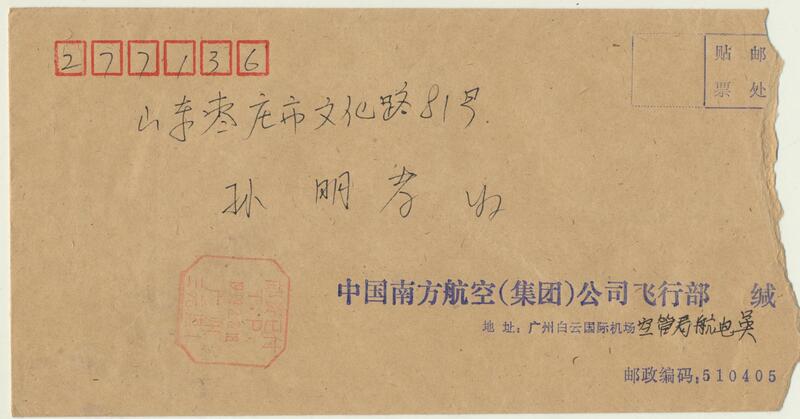 277136
贴邮
票处
山东枣庄市文化路81号.
孙明孝收
中国南方航空(集团)公司飞行部 缄
地址:广州白云国际机场空管局航电吴
邮政编码:510405